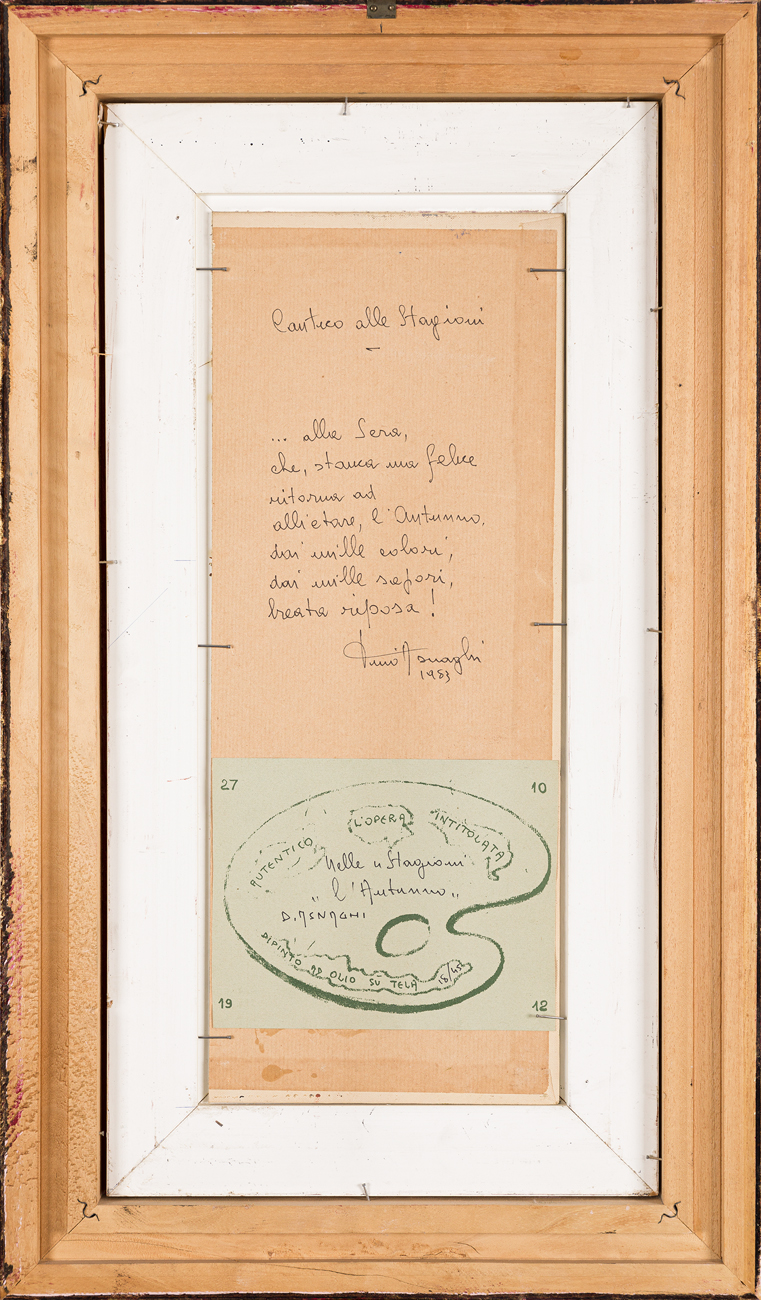 Cantico alle Stagioni
... alla Sera,
che, stanca ma felice
ritorna ad
allietare, l'Autunno,
dai mille colori,
dai mille sapori,
beata riposa!
Dino Asnaghi
1983
27 10
AUTENTICO L'OPERA INTITOLATA
Nelle "Stagioni
"l'Autunno"
D. ASNAGHI
DIPINTO AD OLIO SU TELA 18/45
19 12